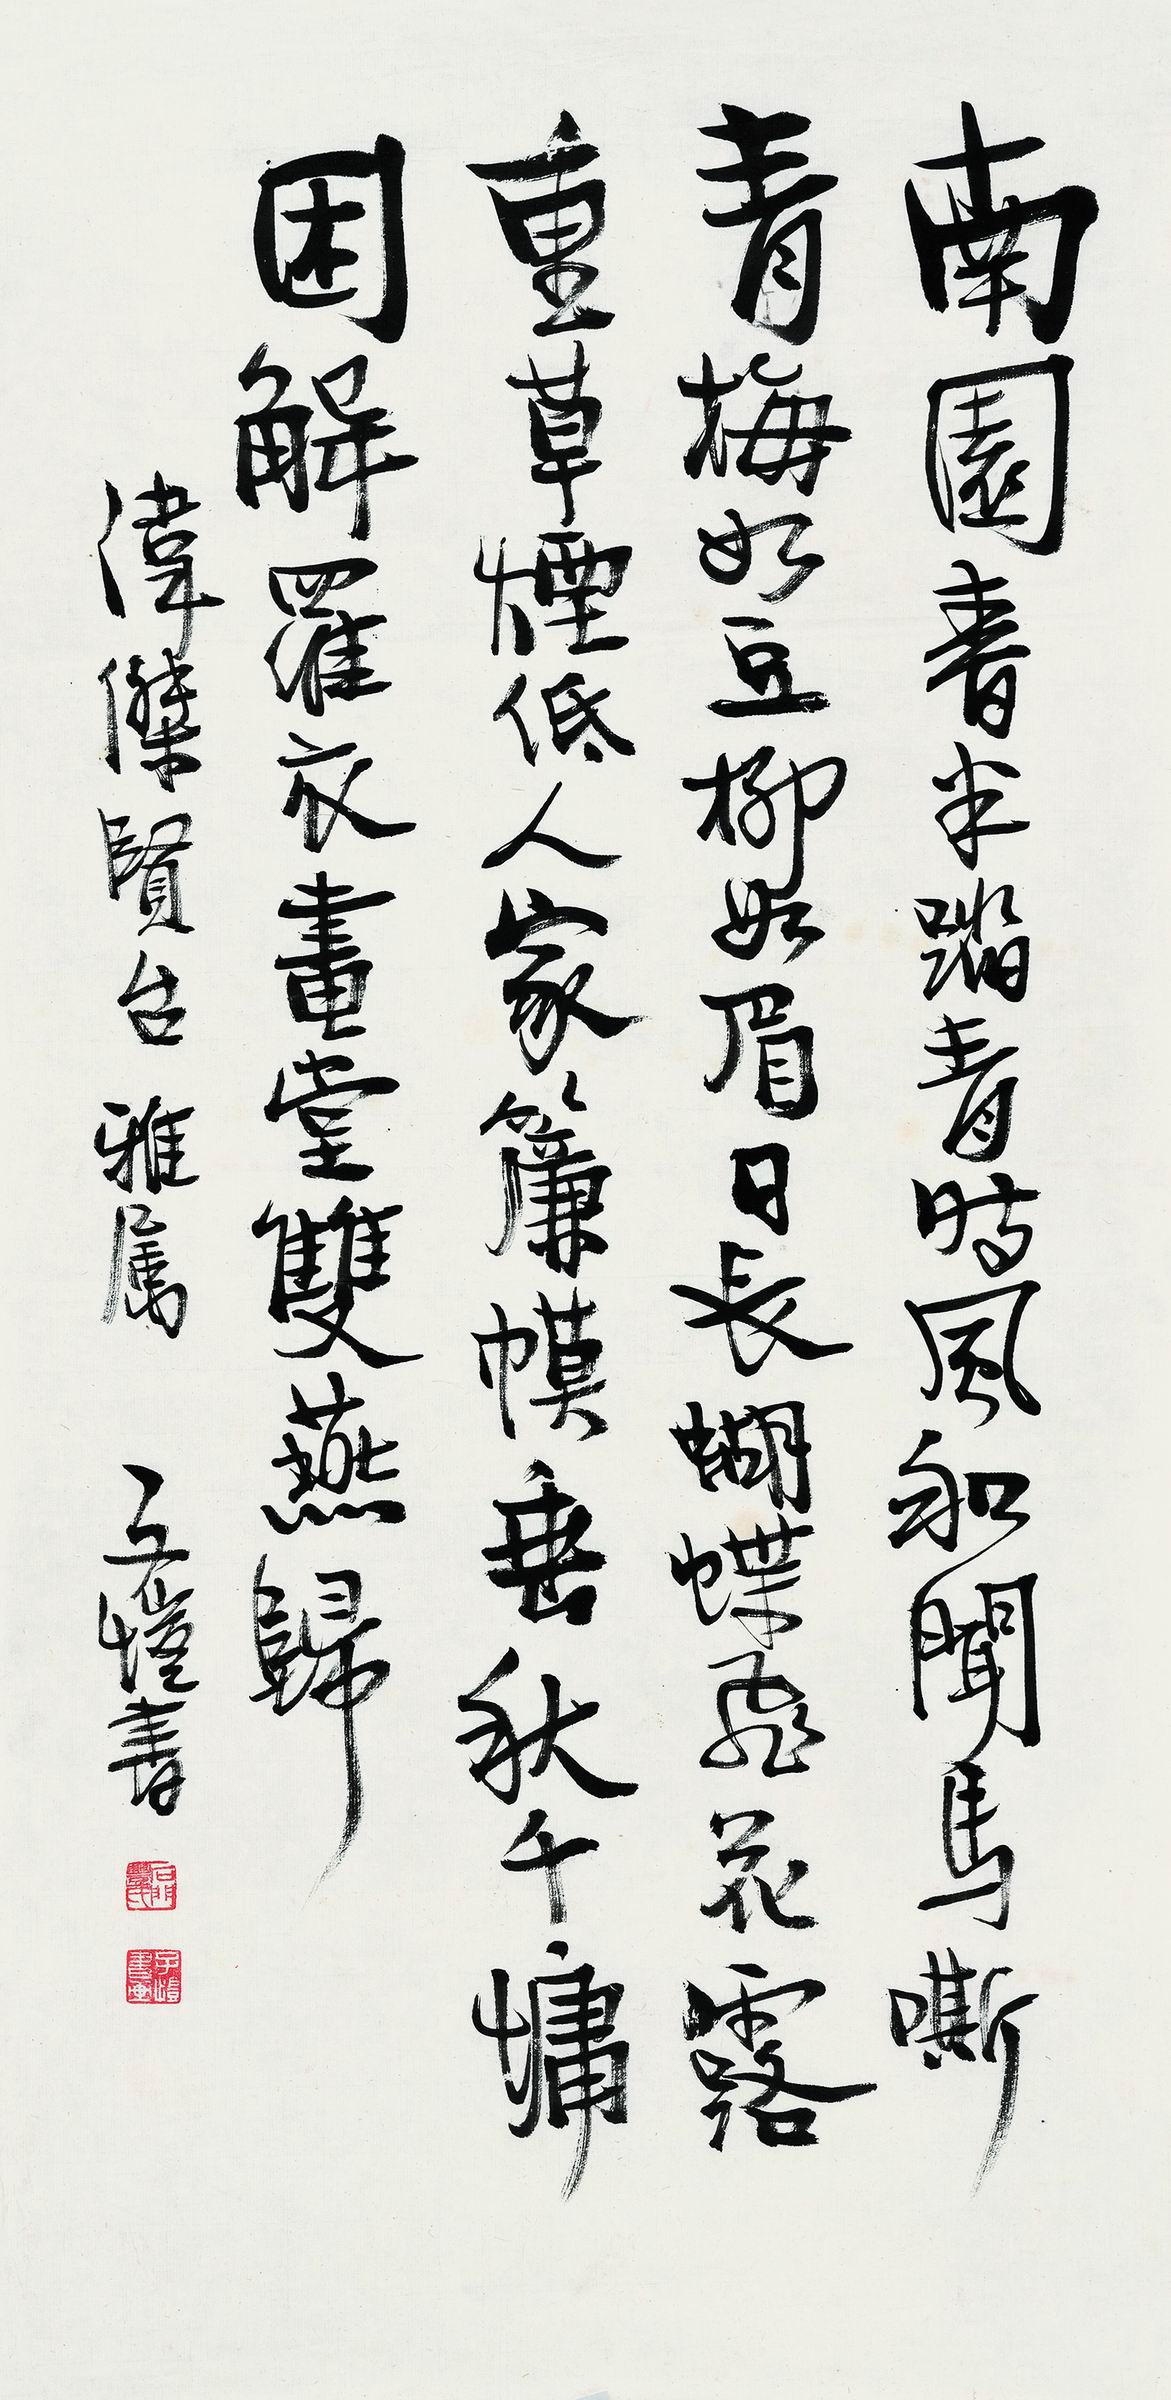 南園春半踏青時風和聞馬嘶
青梅如豆柳如眉日長蝴蝶飛花露
重草煙低人家簾幙垂秋千慵
困解羅衣畫堂雙燕歸
偉傑賢台雅属 子愷書
石門豐氏
子愷書畫